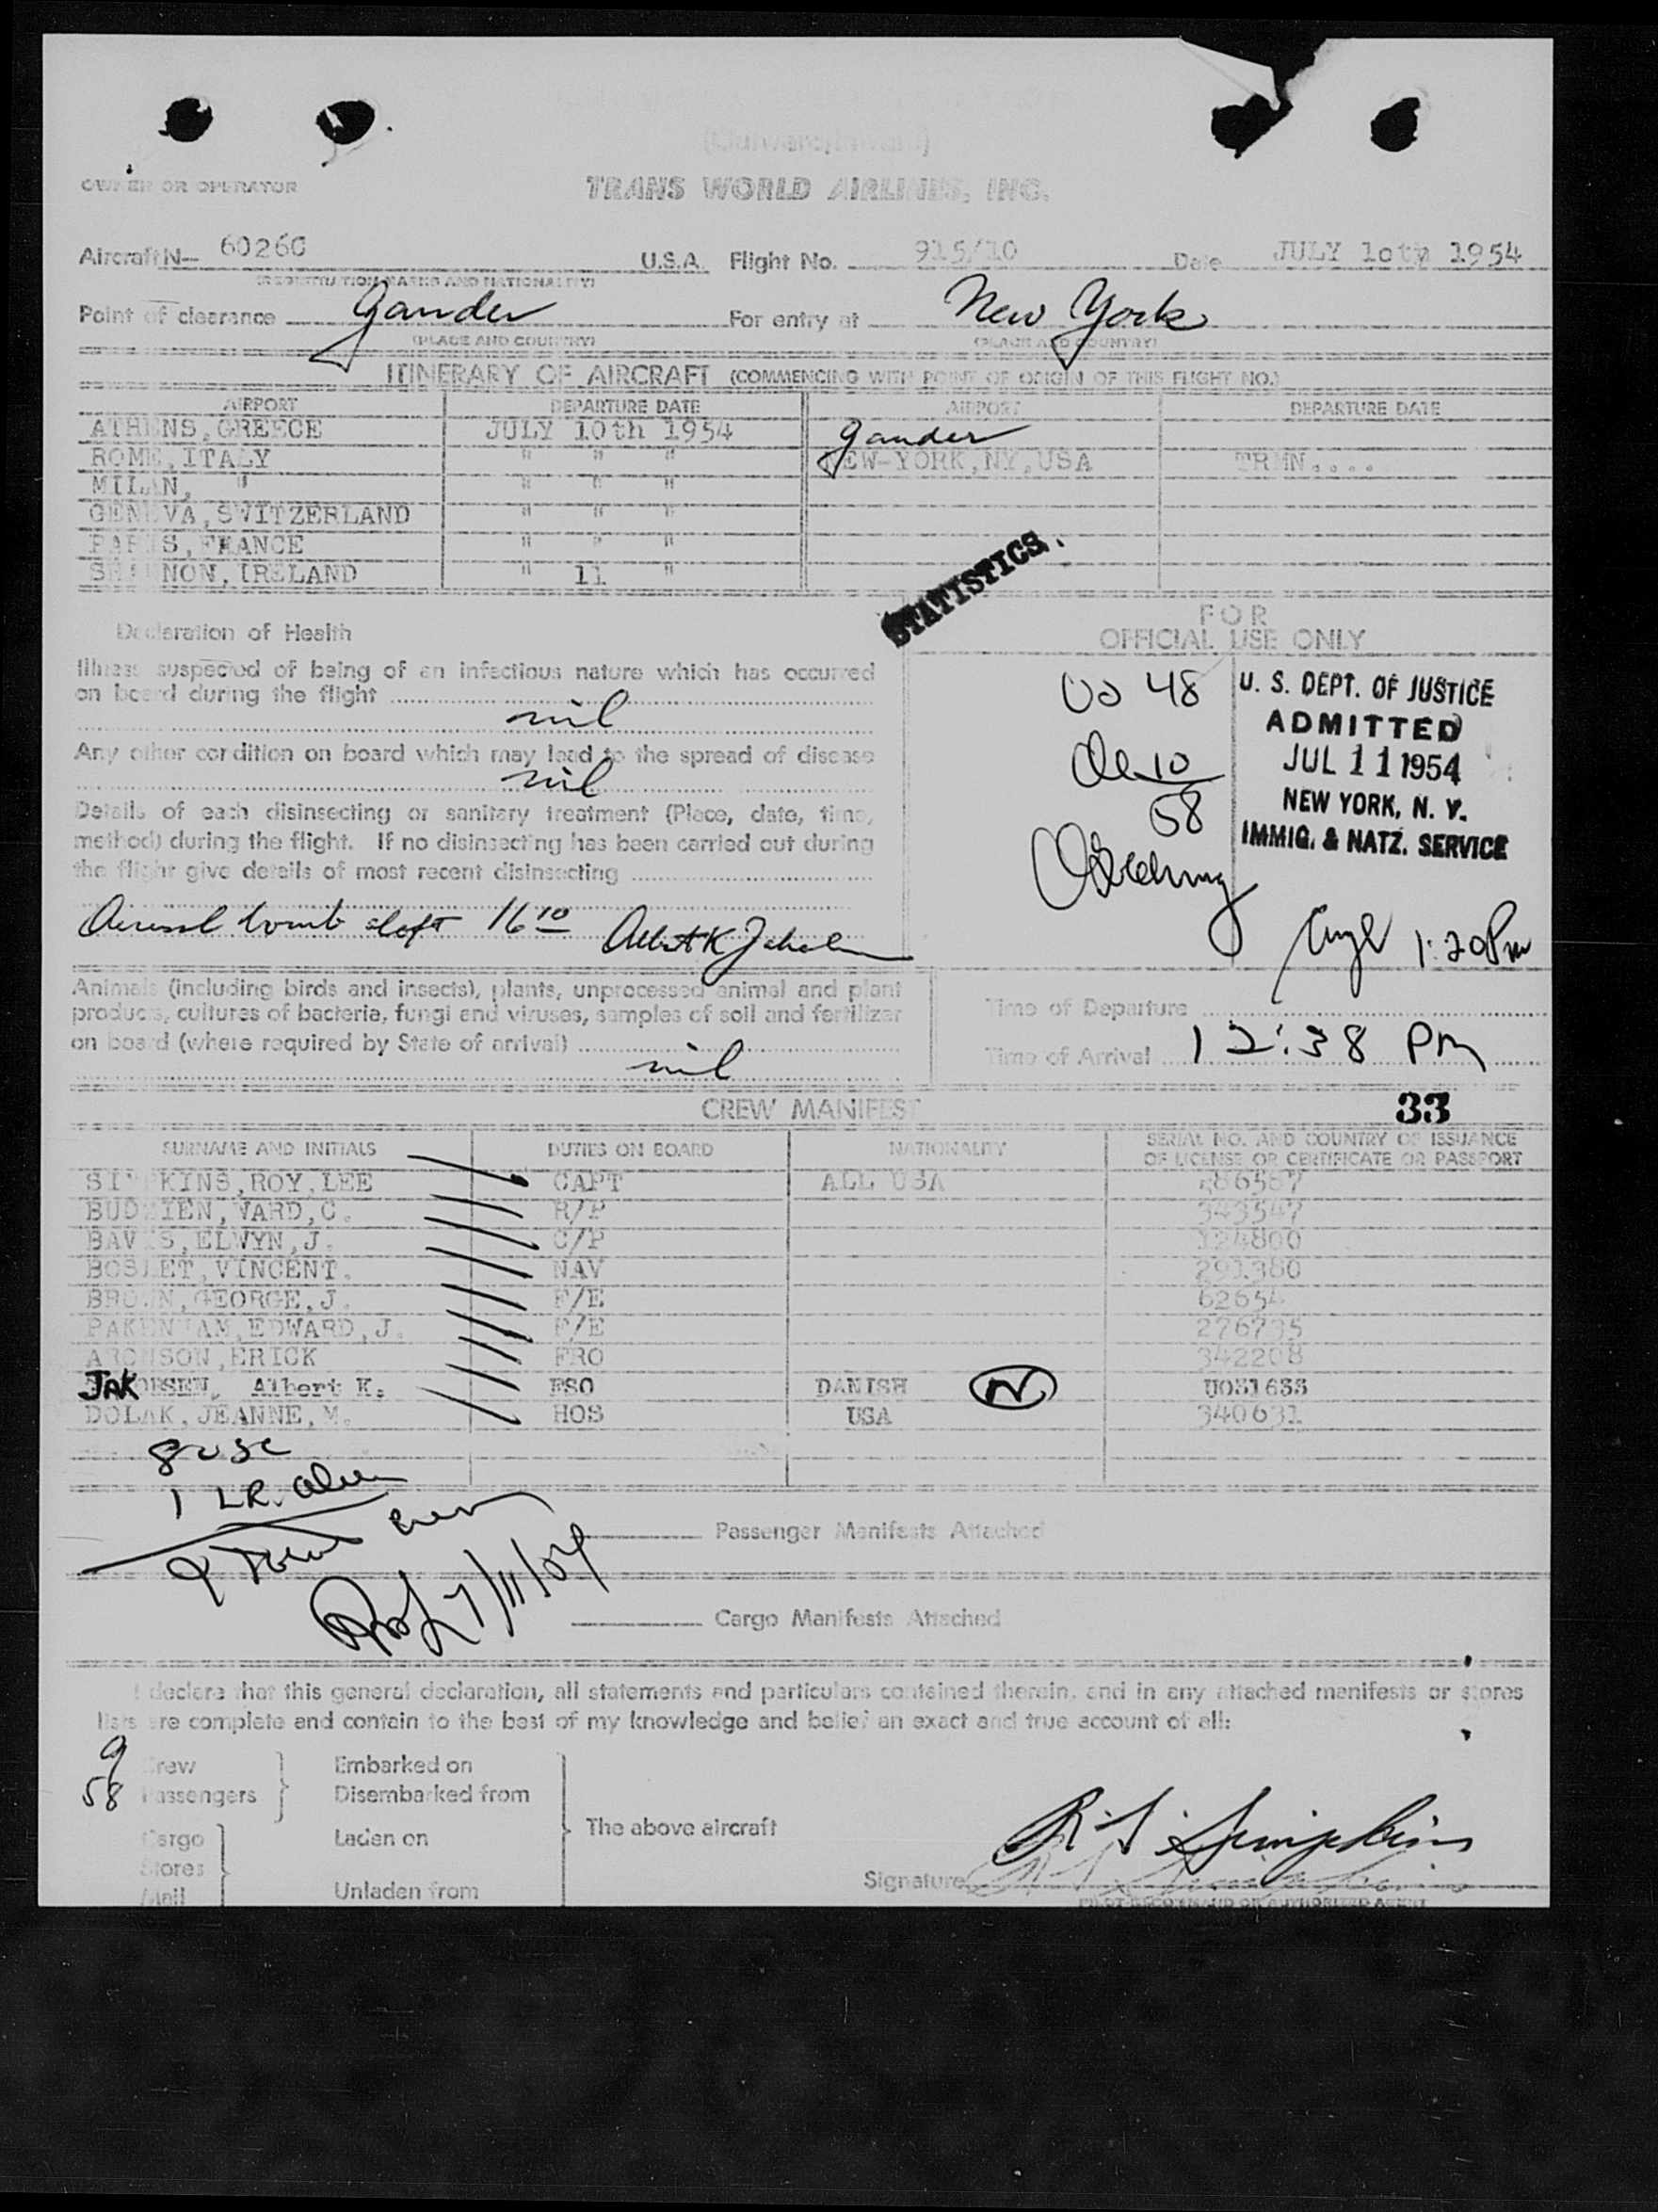 (Outward/Inward)
OWNER OR OPERATOR
TRANS WORLD AIRLINES, INC.
Aircraft N— 6026C U.S.A. Flight No. 915/10 Date JULY 10th 1954
(REGISTRATION MARKS AND NATIONALITY)
Point of clearance Gander For entry at New York
(PLACE AND COUNTRY) (PLACE AND COUNTRY)
ITINERARY OF AIRCRAFT (COMMENCING WITH POINT OF ORIGIN OF THIS FLIGHT NO.)
AIRPORT DEPARTURE DATE AIRPORT DEPARTURE DATE
ATHENS, GREECE JULY 10th 1954 Gander
ROME, ITALY " " " NEW-YORK, NY, USA TRMN....
MILAN, " " " "
GENEVA, SWITZERLAND " " "
PARIS, FRANCE " " "
SHANNON, IRELAND " 11 "
STATISTICS.
Declaration of Health
Illness suspected of being of an infectious nature which has occurred
on board during the flight
nil
Any other condition on board which may lead to the spread of disease
nil
Details of each disinsecting or sanitary treatment (Place, date, time,
method) during the flight. If no disinsecting has been carried out during
the flight give details of most recent disinsecting
Aerosol bomb aloft 16 10
Animals (including birds and insects), plants, unprocessed animal and plant
products, cultures of bacteria, fungi and viruses, samples of soil and fertilizer
on board (where required by State of arrival)
nil
FOR
OFFICIAL USE ONLY
48
10
58
U. S. DEPT. OF JUSTICE
ADMITTED
JUL 11 1954
NEW YORK, N. Y.
IMMIG. & NATZ. SERVICE
1:20 Pm
Time of Departure
Time of Arrival 12:38 PM
CREW MANIFEST
33
SURNAME AND INITIALS DUTIES ON BOARD NATIONALITY SERIAL NO. AND COUNTRY OF ISSUANCE
OF LICENSE OR CERTIFICATE OR PASSPORT
SIMPKINS, ROY, LEE CAPT ALL USA
WARD, C. R/P 343547
ELWYN, J. C/P 124800
VINCENT. NAV 291380
BROWN, GEORGE, J. F/E 62654
PAKENHAM, EDWARD, J. F/E 276735
ARONSON, ERICK FRO 342208
JAKOBSEN, Albert K. FSO DANISH N U031635
DOLAK, JEANNE, M. HOS USA 340631
8 USC
1 L.R. alien
9 Total crew
7/11/54
Passenger Manifests Attached
Cargo Manifests Attached
I declare that this general declaration, all statements and particulars contained therein, and in any attached manifests or stores
lists are complete and contain to the best of my knowledge and belief an exact and true account of all:
9 Crew Embarked on
58 Passengers Disembarked from
The above aircraft
Cargo Laden on
Stores
Mail Unladen from
Signature R. L. Simpkins
PILOT IN COMMAND OR AUTHORIZED AGENT